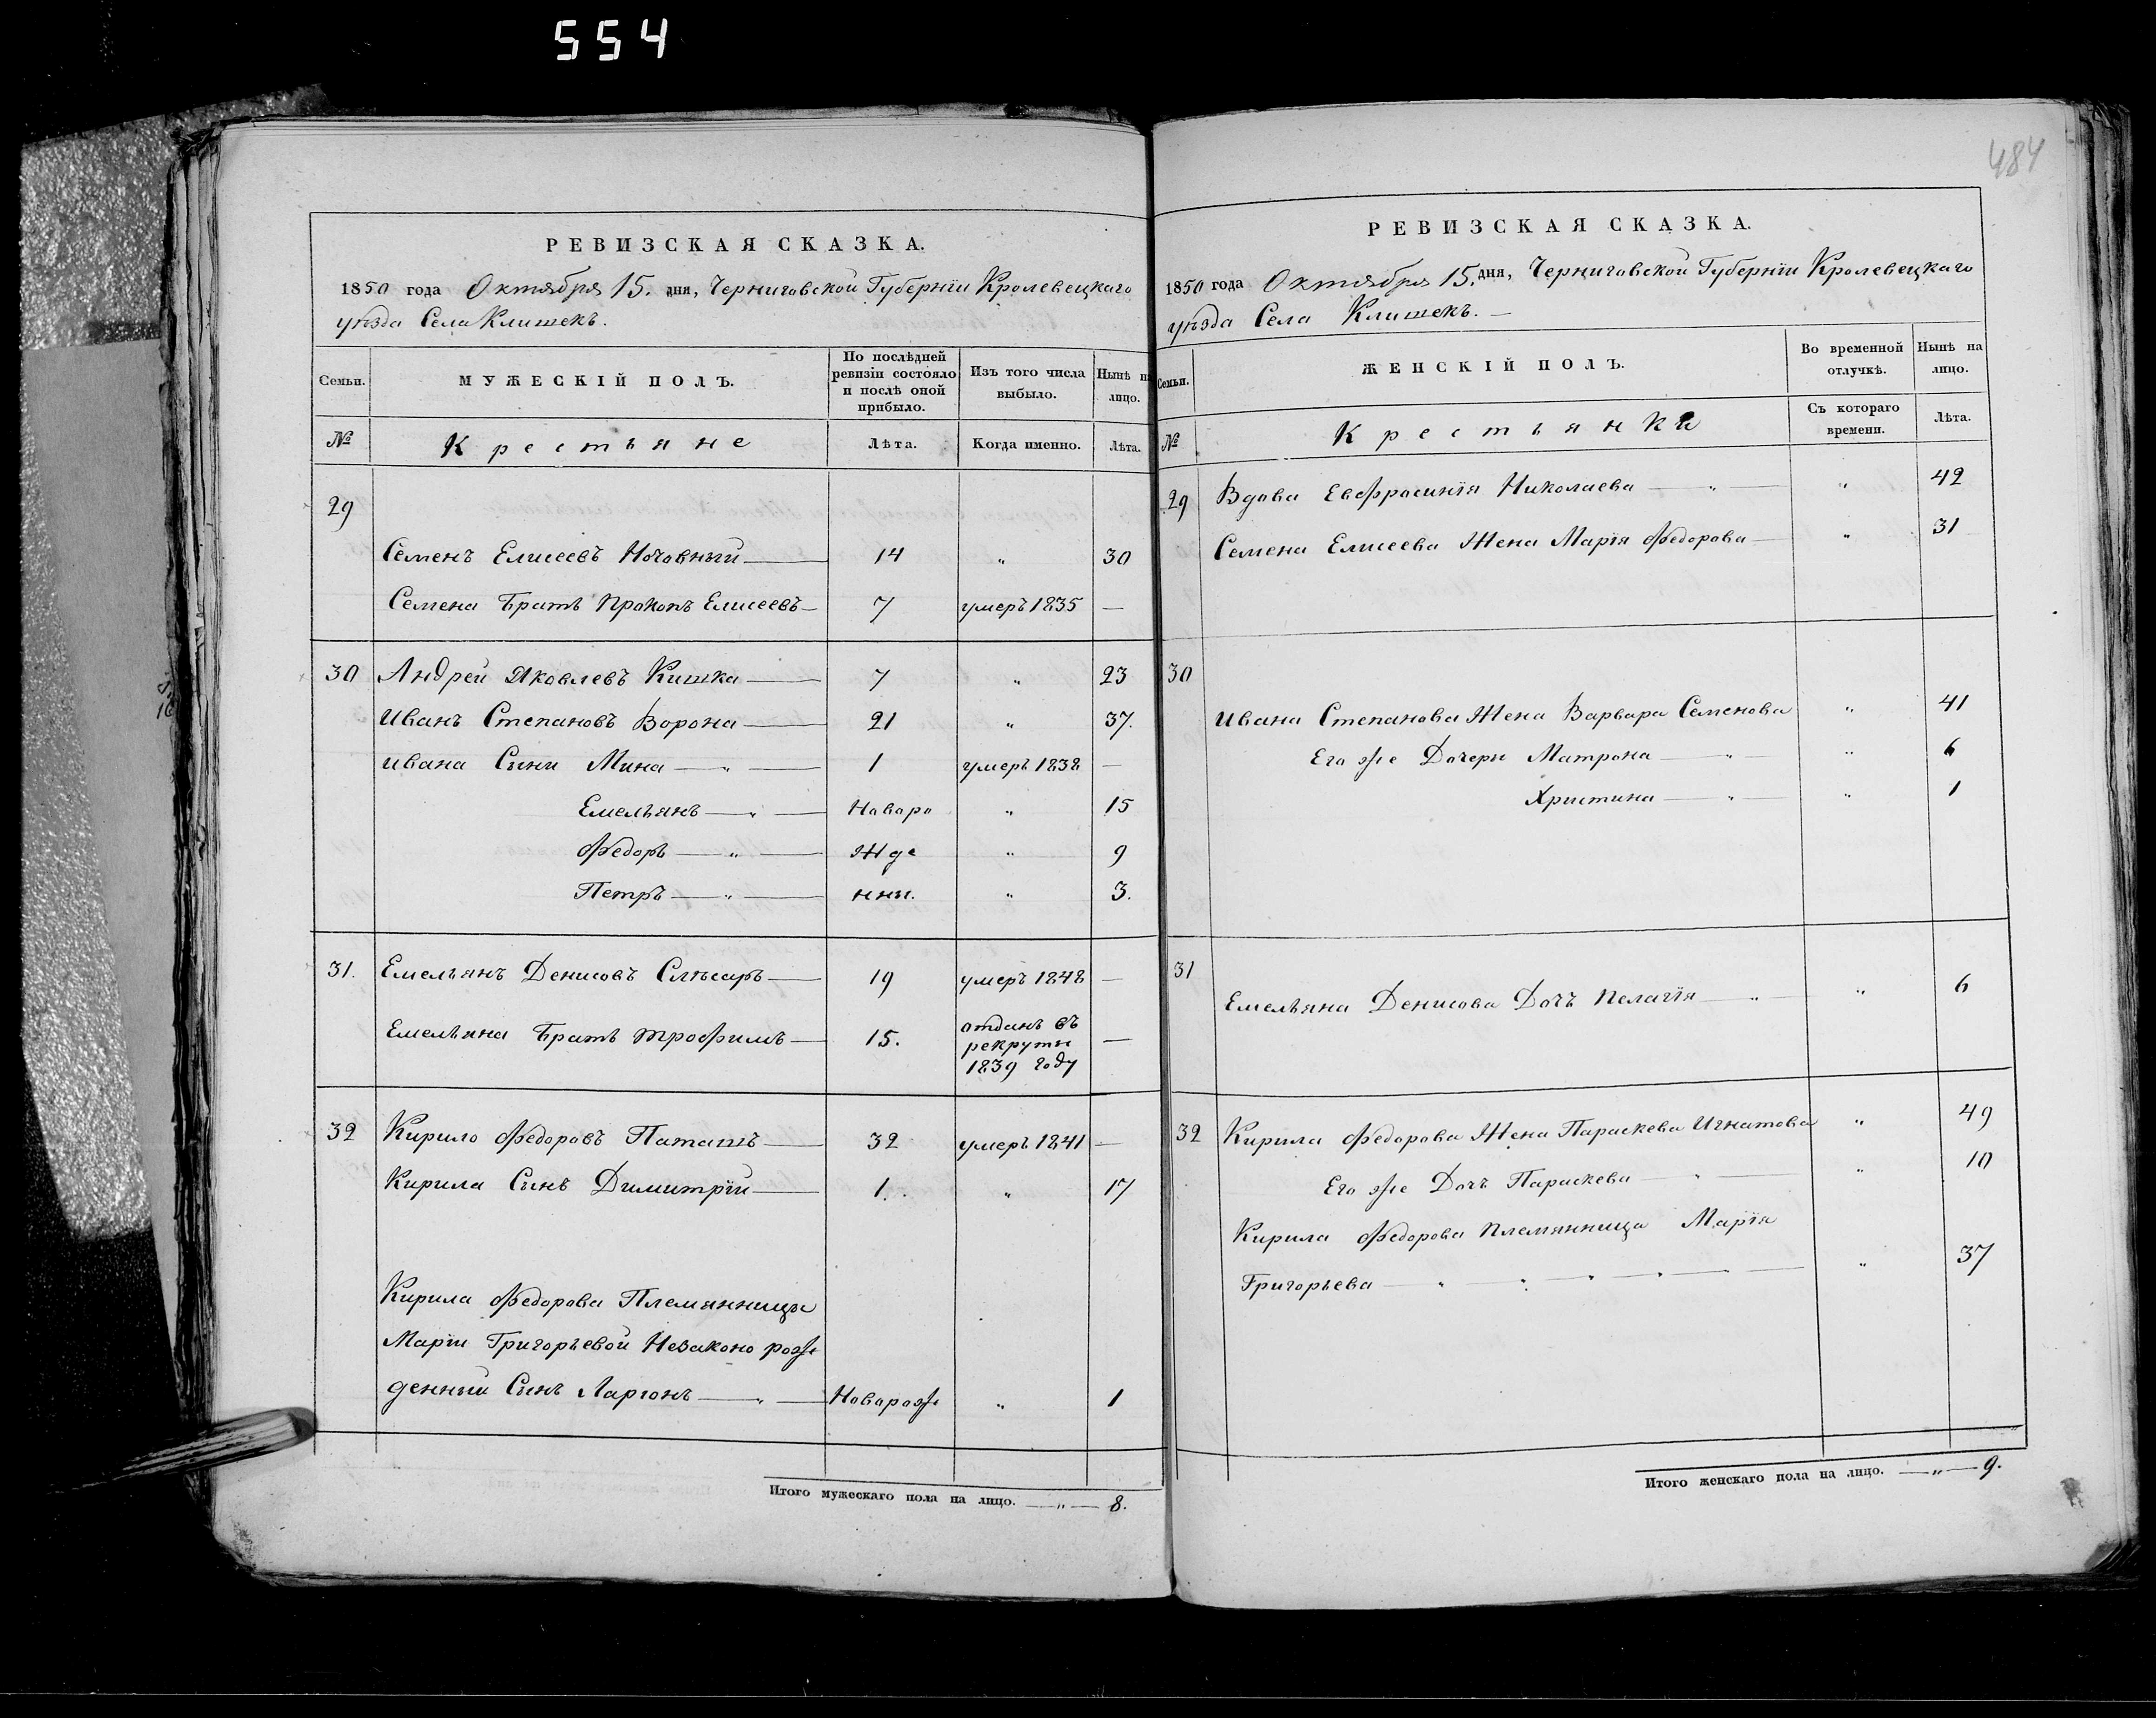 554
484
РЕВИЗСКАЯ СКАЗКА.
1850 года Октября 15. дня, Черниговской Губерніи Кролевецкаго
уѣзда Села Клишекъ.
Семьи.
МУЖЕСКІЙ ПОЛЪ.
По послѣдней ревизіи состояло и послѣ оной прибыло.
Изъ того числа выбыло.
Нынѣ на лицо.
№
Крестьяне
Лѣта.
Когда именно.
Лѣта.
29
Семенъ Елисеевъ Ночовный 14 " 30
Семена Братъ Прокопъ Елисеевъ 7 умеръ 1835 —
30 Андрей Яковлевъ Кишка 7 " 23
Иванъ Степановъ Ворона 21 " 37.
Ивана Сыни Мина — " — 1 умеръ 1838 —
Емельянъ — " — Новаро " 15
Федоръ — " — Жде " 9
Петръ — " — нны. " 3.
31. Емельянъ Денисовъ Слѣсаръ 19 умеръ 1848 —
Емельяна Братъ Трофимъ 15. отданъ въ рекруты 1839 году —
32 Кирило Федоровъ Паташъ 32 умеръ 1841 —
Кирила Сынъ Димитрій 1. " 17
Кирила Федорова Племянницы
Маріи Григорьевой Незаконо рож
денный Сынъ Ларіонъ — " — Новарож " 1
Итого мужескаго пола на лицо. — " — 8.
РЕВИЗСКАЯ СКАЗКА.
1850 года Октября 15. дня, Черниговской Губерніи Кролевецкаго
уѣзда Села Клишекъ. —
Семьи.
ЖЕНСКІЙ ПОЛЪ.
Во временной отлучкѣ.
Нынѣ на лицо.
№
Крестьянки
Съ котораго времени.
Лѣта.
29 Вдова Евфросинія Николаева — " — " 42
Семена Елисеева Жена Марія Федорова " 31
30
Ивана Степанова Жена Варвара Семенова " 41
Его же Дочери Матрона — " — " 6
Христина — " — " 1
31
Емельяна Денисова Дочъ Пелагія — " — " 6
32 Кирила Федорова Жена Параскева Игнатова " 49
Его же Дочъ Параскева — " — " 10
Кирила Федорова Племянница Марія
Григорьева — " — " — " — " — " — " 37
Итого женскаго пола на лицо. — " — 9.